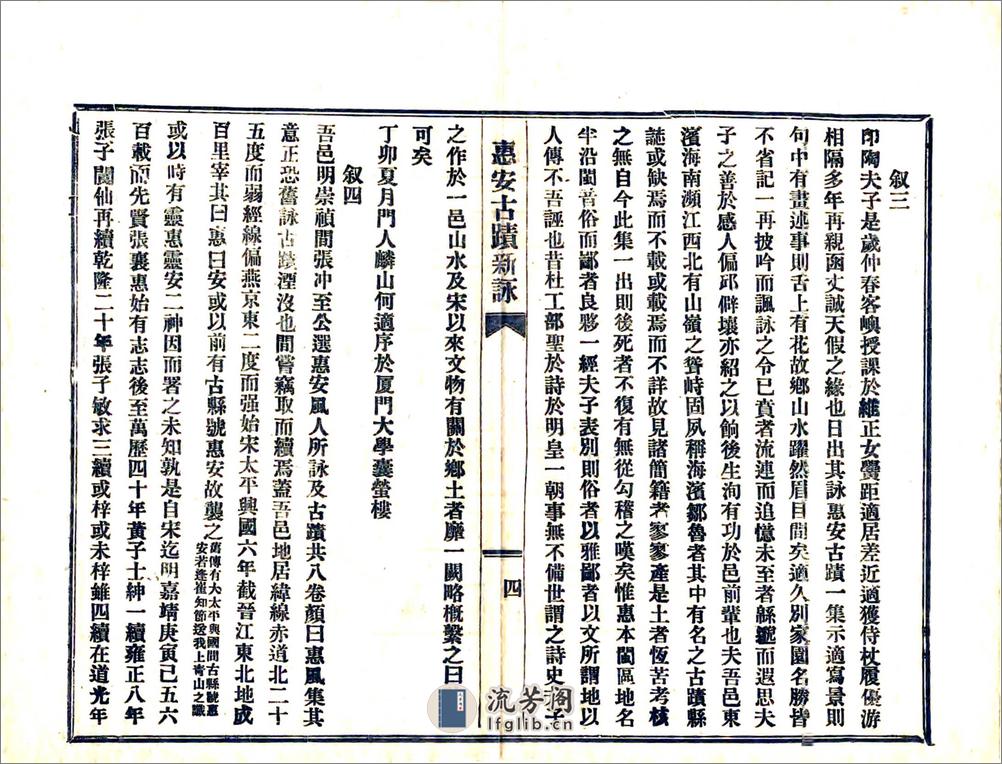 叙三
印陶夫子是歲仲春客嶼授課於維正女黌距適居差近適獲侍杖履優游
相隔多年再親函丈誠天假之緣也日出其詠惠安古蹟一集示適寫景則
句中有畫述事則舌上有花故鄉山水躍然眉目間矣適久別家園名勝皆
不省記一再披吟而諷詠之令已賁者流連而追憶未至者緜邈而遐思夫
子之善於感人偏邱僻壤亦紹之以餉後生洵有功於邑前輩也夫吾邑東
濱海南瀕江西北有山嶺之聳峙固夙稱海濱鄒魯者其中有名之古蹟縣
誌或缺焉而不載或載焉而不詳故見諸簡籍者寥寥產是土者恆苦考核
之無自今此集一出則後死者不復有無從勾稽之嘆矣惟惠本閩區地名
半沿閩音俗而鄙者良夥一經夫子表別則俗者以雅鄙者以文所謂地以
人傳不吾誣也昔杜工部聖於詩於明皇一朝事無不備世謂之詩史夫子
惠安古蹟新詠
四
之作於一邑山水及宋以來文物有關於鄉土者靡一闕略概繫之曰
可矣
丁卯夏月門人麟山何適序於厦門大學囊螢樓
叙四
吾邑明崇禎間張冲至公選惠安風人所詠及古蹟共八卷顏曰惠風集其
意正恐舊詠古蹟湮沒也間嘗竊取而續焉蓋吾邑地居緯線赤道北二十
五度而弱經線偏燕京東二度而强始宋太平興國六年截晉江東北地成
百里宰其曰惠曰安或以前有古縣號惠安故襲之舊傳有大太平興國間古縣號惠安若逢崔知節送我上青山之讖
或以時有靈惠靈安二神因而署之未知孰是自宋迄明嘉靖庚寅已五六
百載而先賢張襄惠始有志志後至萬歷四十年黃子士紳一續雍正八年
張子閬仙再續乾隆二十年張子敏求三續或梓或未梓雖四續在道光年
流芳阁
lfglib.cn